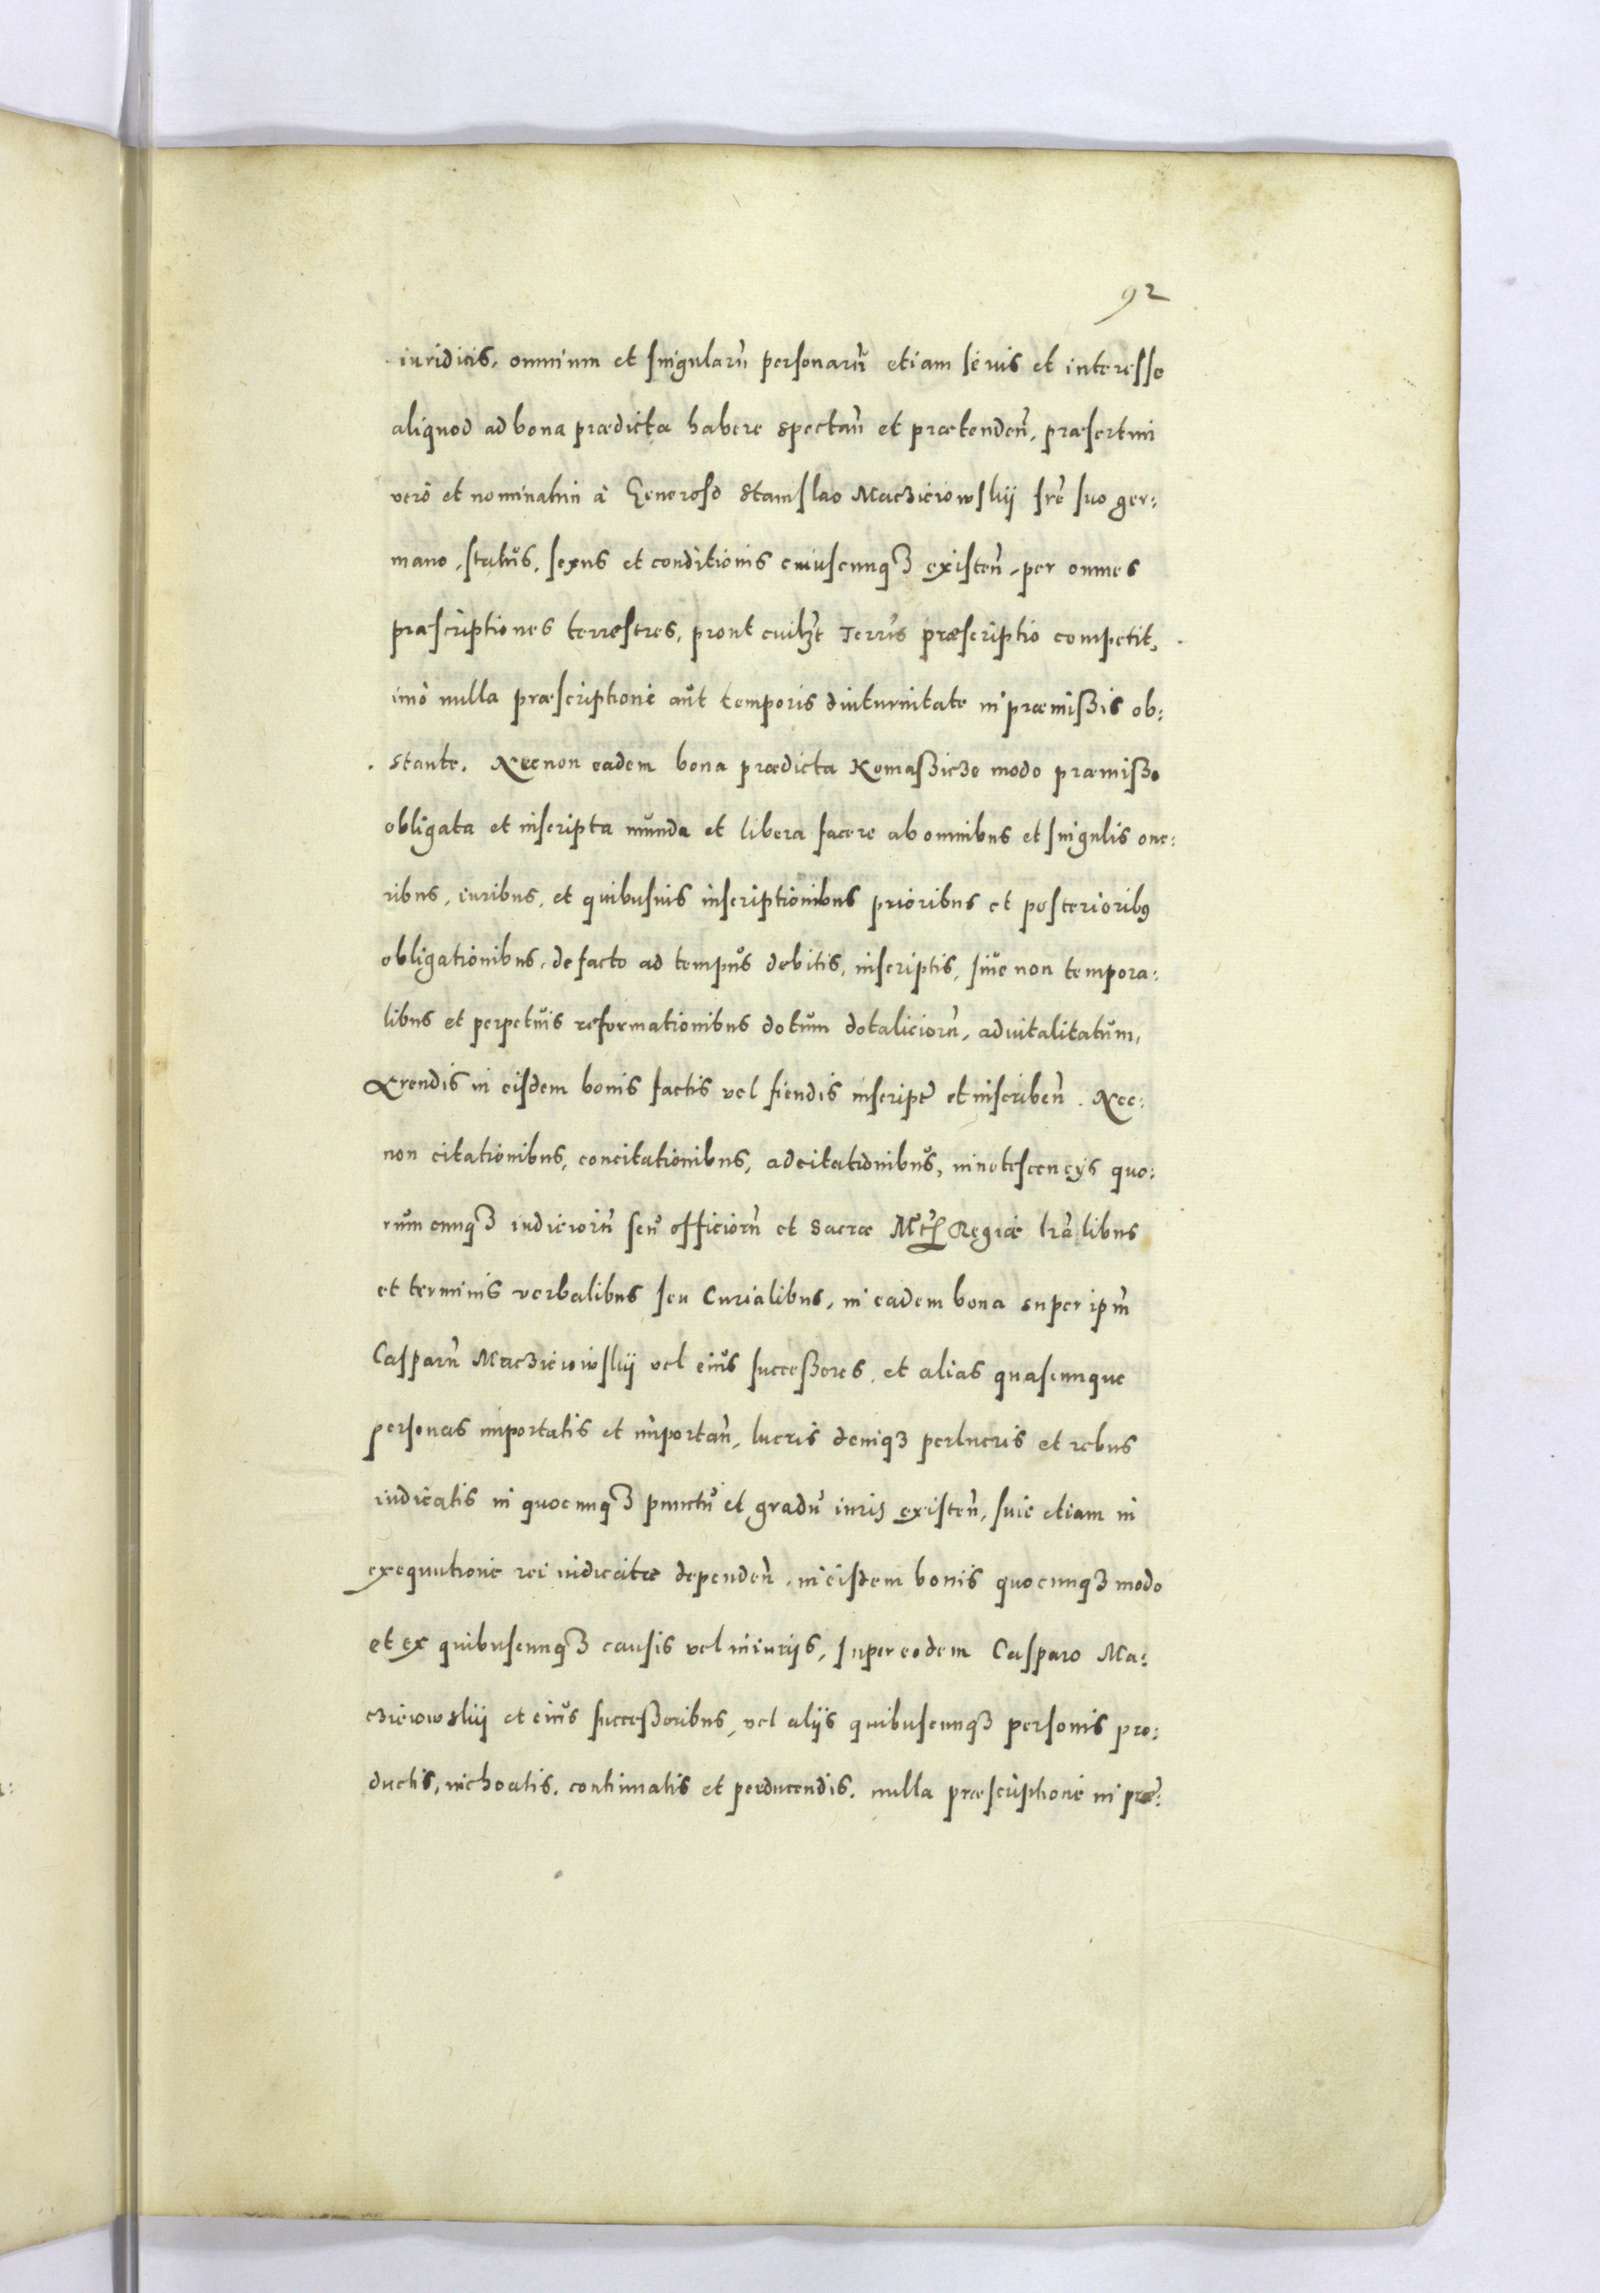 92
iuridicis, omnium et singularũ personarũ etiam se ius et interesse
aliquod ad bona prædicta habere spectañ et prætendeñ, præsertim
verò et nominatim à Generoso Stanislao Maczieiowskij fr̃e suo ger:
mano, status, sexus et conditionis cuiuscunqꝫ existeñ, per omnes
præscriptiones terrestres, prout cuilꝫt Terrĩs præscriptio competit,
imò nulla præscriptione aut temporis diuturnitate in præmißis ob:
stante. Necnon eadem bona prædicta Komaßicze modo præmißo
obligata et inscripta munda et libera facere ab omnibus et singulis one:
ribus, iuribus, et quibusuis inscriptionibus prioribus et posterioribꝰ
obligationibus, de facto ad tempus debitis, inscriptis, siue non tempora:
libus et perpetuis reformationibus dotum dotaliciorũ, aduitalitatum,
Arendis in eisdem bonis factis vel fiendis inscript̃ et inscribeñ. Nec:
non citationibus, concitationibus, adcitationibus, innotescencijs quo:
rumcunqꝫ iudiciorũ seu officiorũ et Sacræ Mt̃ Regiæ lr̃alibus
et terminis verbalibus seu Curialibus, in eadem bona super ipm̃
Casparũ Maczieiowskij vel eius succeßores, et alias quascunque
personas importatis et importañ, lucris deniqꝫ perlucris et rebus
iudicatis in quocunqꝫ punctu et gradu iuris existeñ, siue etiam in
exequutione rei iudicatæ dependeñ, in eisdem bonis quocunqꝫ modo
et ex quibuscunqꝫ causis vel iniurijs, super eodem Casparo Ma:
czieiowskij et eius succeßoribus, vel alijs quibuscunqꝫ personis pro:
ductis, inchoatis, continuatis et perducendis, nulla præscriptione in præ: